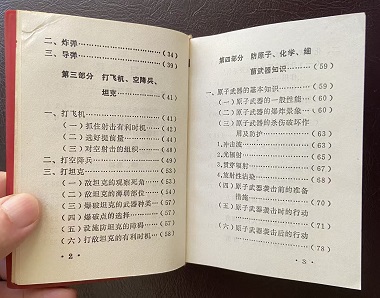 二、炸弹……………………(34)
三、导弹……………………(39)
第三部分 打飞机、空降兵、
坦克……………………(41)
一、打飞机……………………(41)
(一)抓住射击有利时机……(42)
(二)选好提前量……………(44)
(三)对空射击的组织………(48)
二、打空降兵…………………(49)
三、打坦克……………………(53)
(一)敌坦克的观察死角……(53)
(二)敌坦克的薄弱部位……(54)
(三)爆破坦克的武器种类…(55)
(四)爆破点的选择…………(56)
(五)设施防坦克的障碍……(57)
(六)打敌坦克的有利时机…(58)
• 2 •
第四部分 防原子、化学、细
菌武器知识……………(59)
一、原子武器的基本知识………(59)
(一)原子武器的一般性能…(60)
(二)原子武器的爆炸景象…(60)
(三)原子武器的杀伤破坏作
用及防护………………(63)
1.冲击波……………………(63)
2.光辐射……………………(65)
3.贯穿辐射…………………(67)
4.放射性沾染………………(68)
(四)原子武器袭击前的准备
措施……………………(70)
(五)原子武器袭击时的行动
……………………………(76)
(六)原子武器袭击后的行动
……………………………(78)
• 3 •